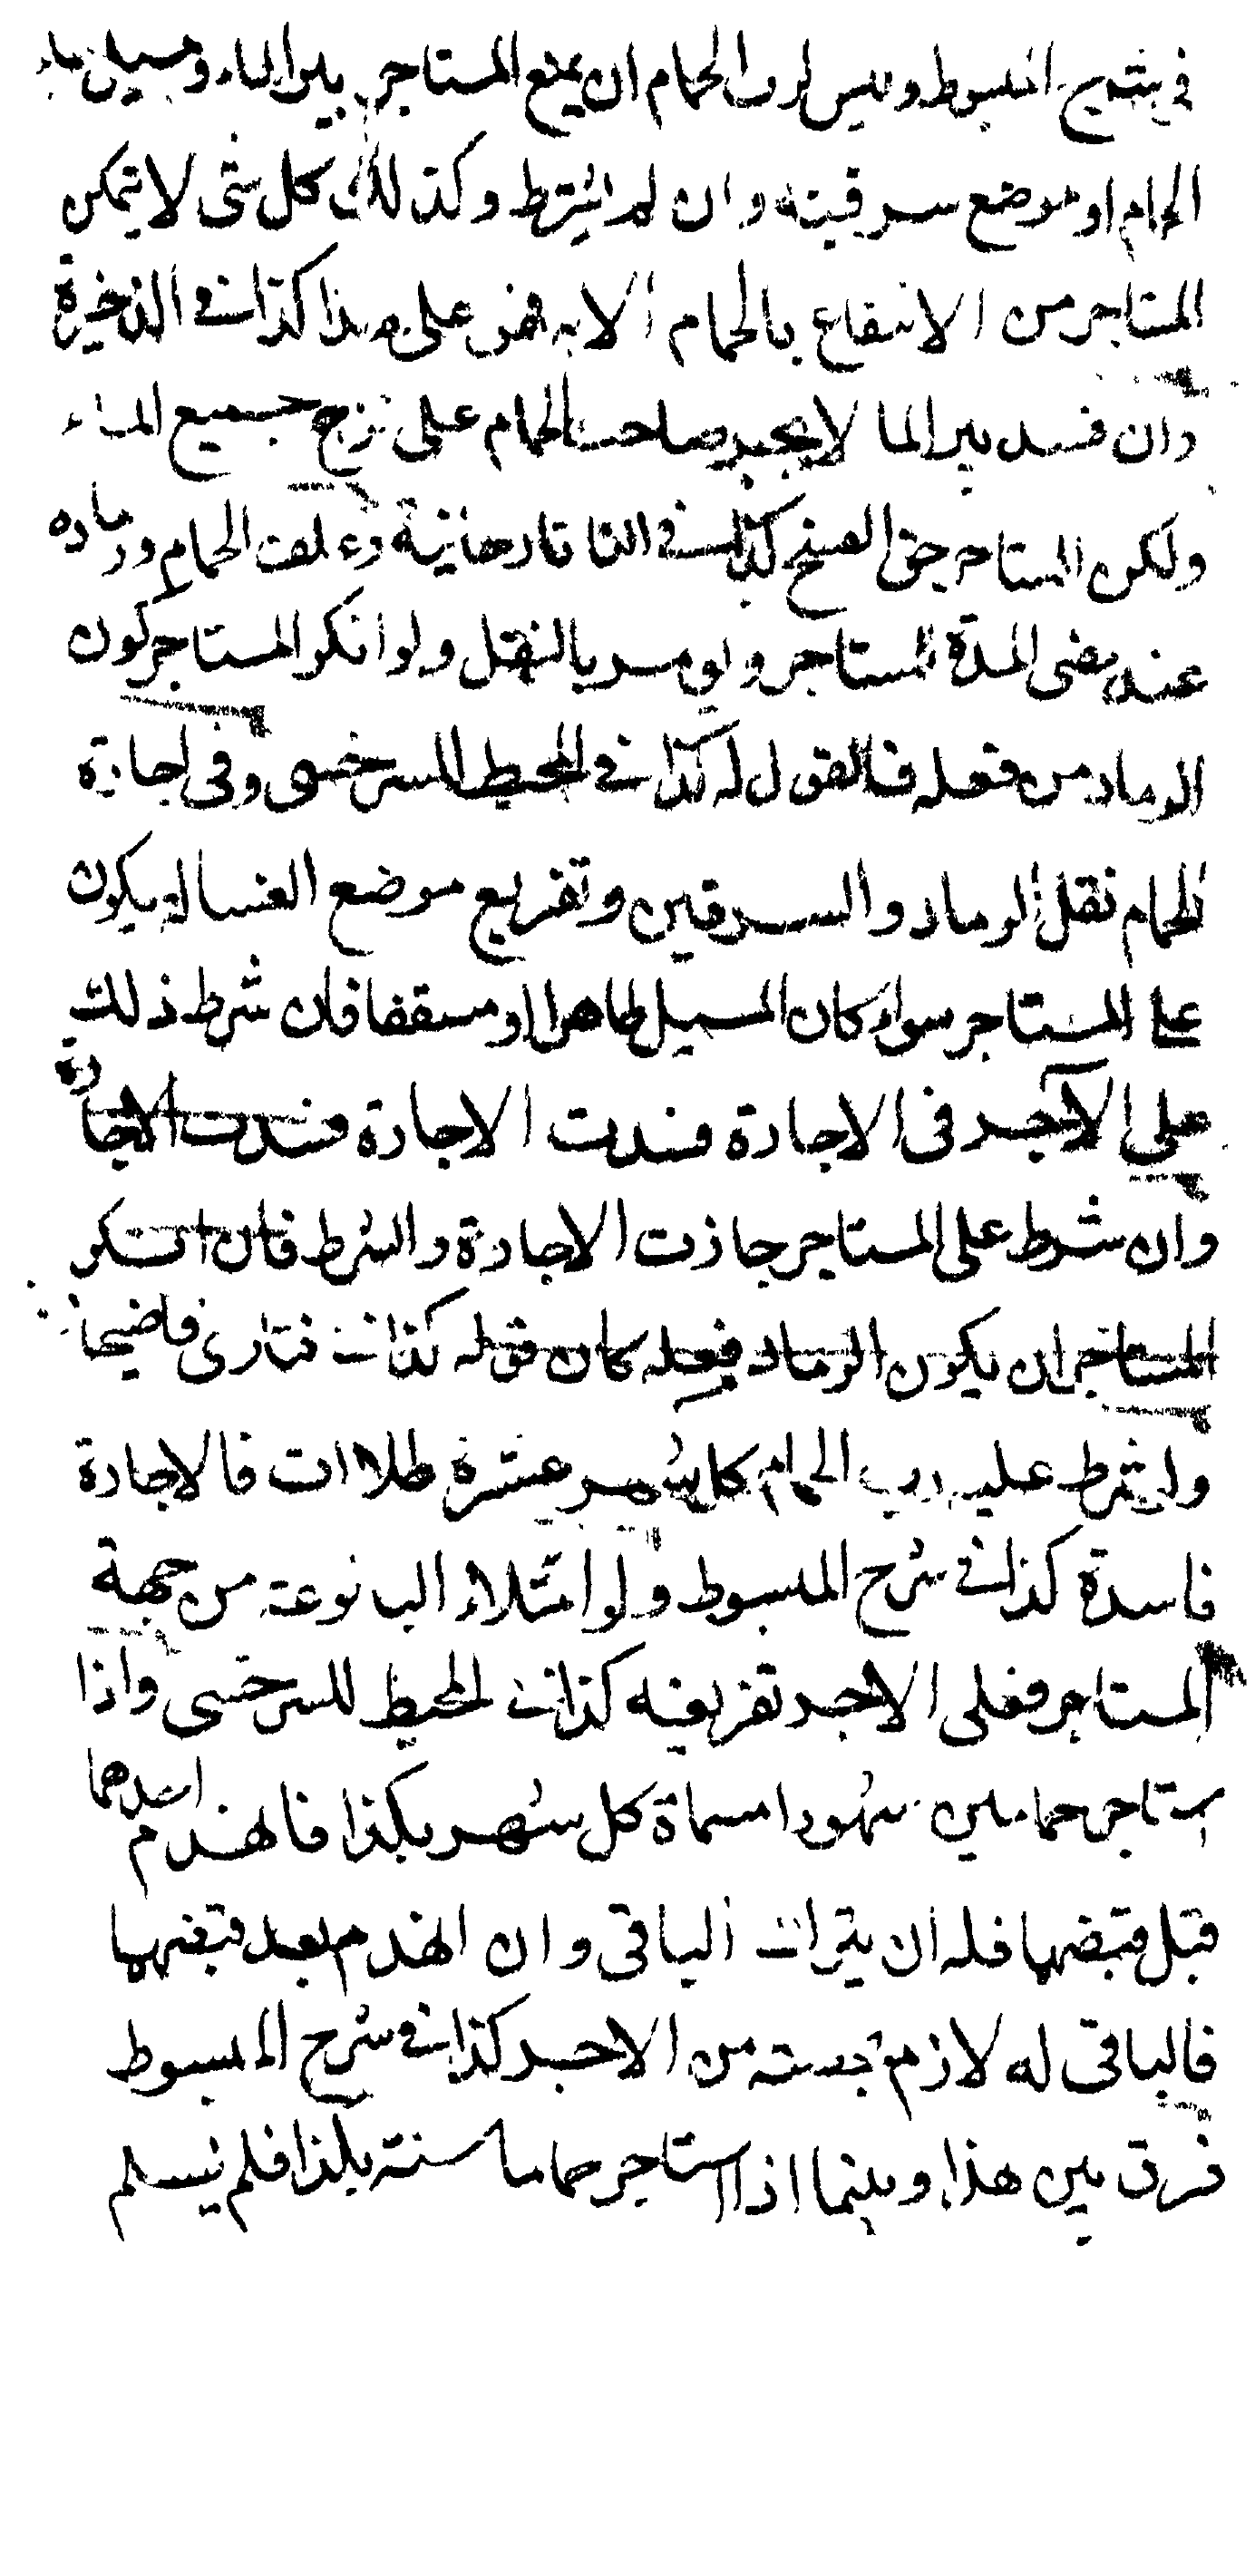 في شرح المبسوط وليس لرب الحمام ان يمنع المستاجر بير الماء ومسيل ماء
الحمام او موضع سرقينه وان لم يشترط وكذلك كل شي لا يتمكن
المستاجر من الانتفاع بالحمام الا به فهو على هذا كذا في الذخيرة
وان فسد بير الما لا يجبر صاحب الحمام على نزح جميع الماء
ولكن للمستاجر حق الفسخ كذا في التاتارخانية وعلف الحمام ورماده
عند مضى المدة للمستاجر ويومر بالنقل ولو انكر المستاجر كون
الرماد من فعله فالقول له كذا في المحيط للسرخسى وفى اجارة
الحمام نقل الرماد والسرقين وتفريغ موضع الغسالة يكون
على المستاجر سواء كان المسيل ظاهرا او مسقفا فان شرط ذلك
على الآجر فى الاجارة فسدت الاجارة فسدت الاجارة
وان شرط على المستاجر جازت الاجارة والشرط فان انكر
المستاجر ان يكون الرماد فعله كان قوله كذا في فتاوى قاضيخان
وان شرط عليه رب الحمام كل شهر عشرة طلاات فالاجارة
فاسدة كذا في شرح المبسوط ولو امتلاء البانوعة من جهة
المستاجر فعلى الاجر تفريغه كذا في المحيط للسرخسى واذا
استاجر حمامين شهورا مسماة كل شهر بكذا فانهدم احدهما
قبل قبضها فله ان يترك الباقى وان انهدم بعد قبضهما
فالباقى له لازم بحصته من الاجر كذا في شرح المبسوط
فرق بين هذا وبينما اذا استاجر حماما سنة بكذا فلم يسلم